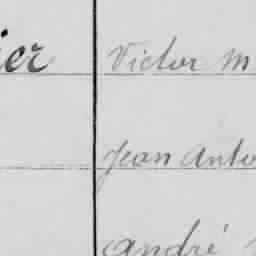 ier Victor M
Jean Anto
André